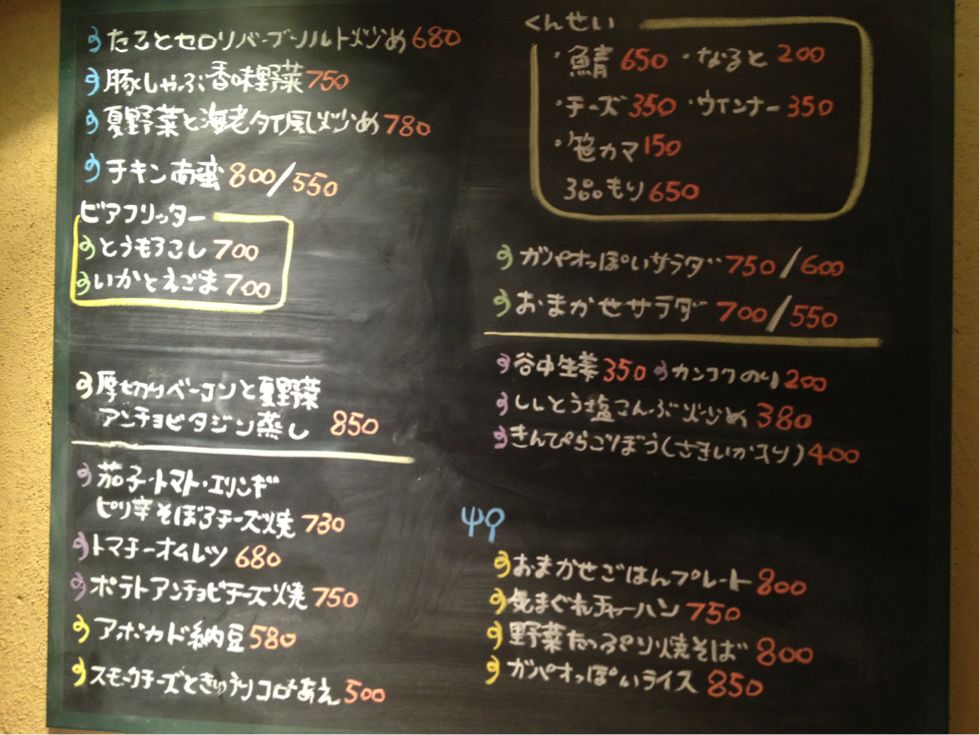 たことセロリハーブソルト炒め 680
豚しゃぶ香味野菜 750
夏野菜と海老タイ風炒め 780
チキン南蛮 800/550
ビアフリッター
とうもろこし 700
いかとえごま 700
厚切りベーコンと夏野菜
アンチョビタジン蒸し 850
茄子・トマト・エリンギ
ピリ辛そぼろチーズ焼 730
トマチーオムレツ 680
ポテトアンチョビチーズ焼 750
アボカド納豆 580
スモークチーズときゅうりコロコロあえ 500
くんせい
・鯖 650 ・なると 200
・チーズ 350 ・ウインナー 350
・笹カマ 150
3品もり 650
ガパオっぽいサラダ 750/600
おまかせサラダ 700/550
谷中生姜 350 カンコクのり 200
ししとう塩こんぶ炒め 380
きんぴらごぼう(さきいか入り) 400
おまかせごはんプレート 800
気まぐれチャーハン 750
野菜たっぷり焼そば 800
ガパオっぽいライス 850